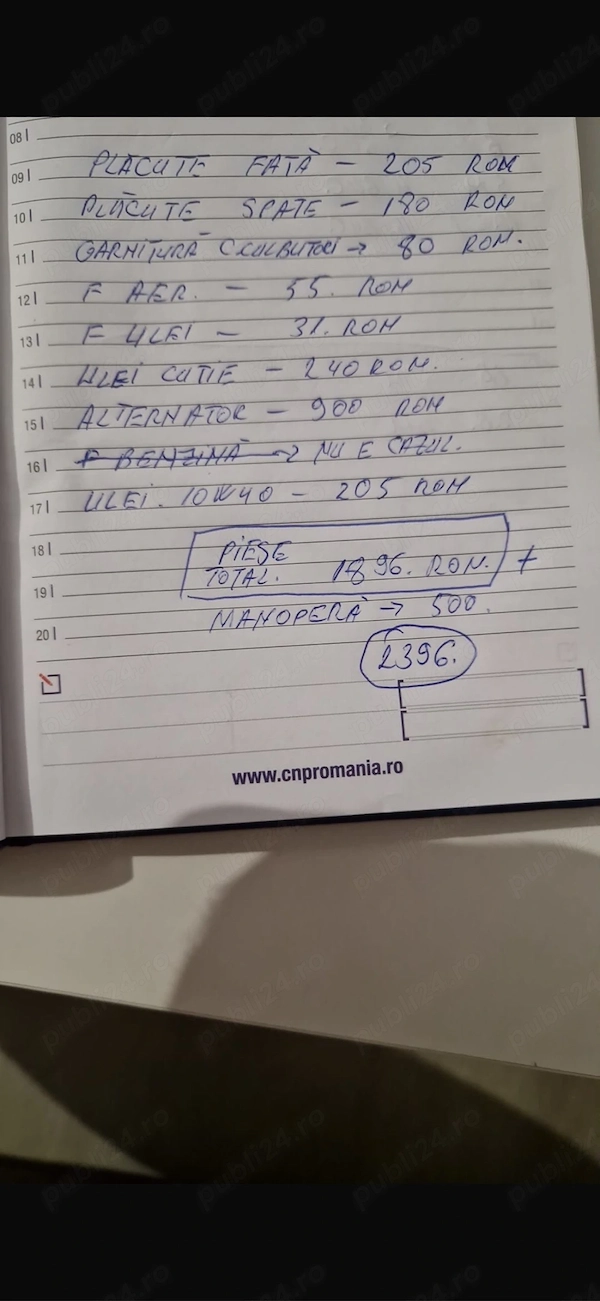 08
09 PLĂCUTE FAȚĂ - 205 RON
10 PLĂCUTE SPATE - 180 RON
11 GARNITURĂ CCULBUTORI → 80 RON.
12 F AER. - 55. RON
13 F ULEI - 31. RON
14 ULEI CUTIE - 240 RON.
15 ALTERNATOR - 900 RON
16 F BENZINĂ → NU E CAZUL.
17 ULEI. 10W40 - 205 RON
18 PIESE
19 TOTAL. 1896. RON. +
MANOPERĂ → 500.
20
2396.
www.cnpromania.ro
publi24.ro